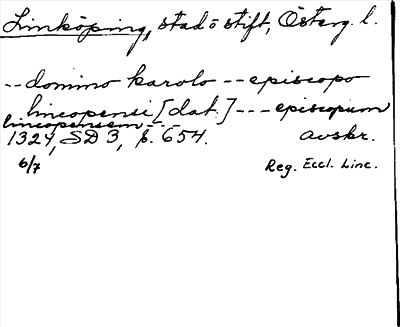 Linköping, stad o stift, Österg. l.
-- domino karolo -- episcopo
lincopensi [dat.] --- episcopum
lincopensem ---
1324, SD 3, s. 654. avskr.
6/7 Reg. Eccl. Linc.